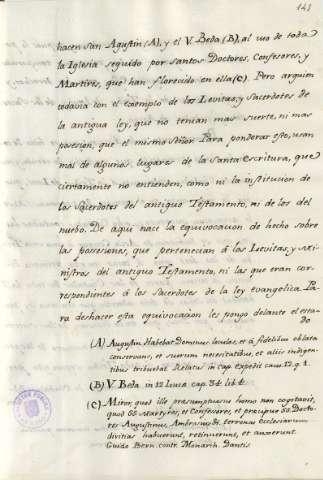 141
hacen San Agustin (A), y el V. Beda (B), al uso de toda
la Iglesia seguido por Santos Doctores, Confesores, y
Martires, que han florecido en ella (C). Pero arguien
todavia con el exemplo de los Levitas, y Sacerdotes de
la antigua ley, que no tenian mas suerte, ni mas
posesion, que el mismo Señor. Para ponderar esto, usan
mal de algunos lugares de la Santa Escritura, que
ciertamente no entienden, como ni la institucion de
los Sacerdotes del antiguo Testamento, ni de los del
nuebo. De aqui nace la equivocacion de hecho sobre
las possesiones, que pertenecian á los Levitas, y Mi-
nistros del antiguo Testamento, ni las que eran cor-
respondientes á los Sacerdotes de la ley evangelica. Pa-
ra deshacer esta equivocacion les pongo delante el esta-
do
(A) Augustin. Habebat Dominus loculos, et á fidelibus oblata
conservans, et suorum necesitatibus, et aliis indigen-
tibus tribuebat. Relatus in cap. expedit caus. 12. q. 1.
(B) V. Beda in 12 Lucæ cap. 54. lib. 4.
(C) Miror, quod ille presumptuosus homo non cogitavit,
quod SS. Martyres, et Confesores, et præcipue SS. Docto-
res Augustinus, Ambrosius &. terrenas ecclesiarum
divitias habuerunt, retinuerunt, et auxerunt.
Guido Bern. contr. Monarch. Dantis.